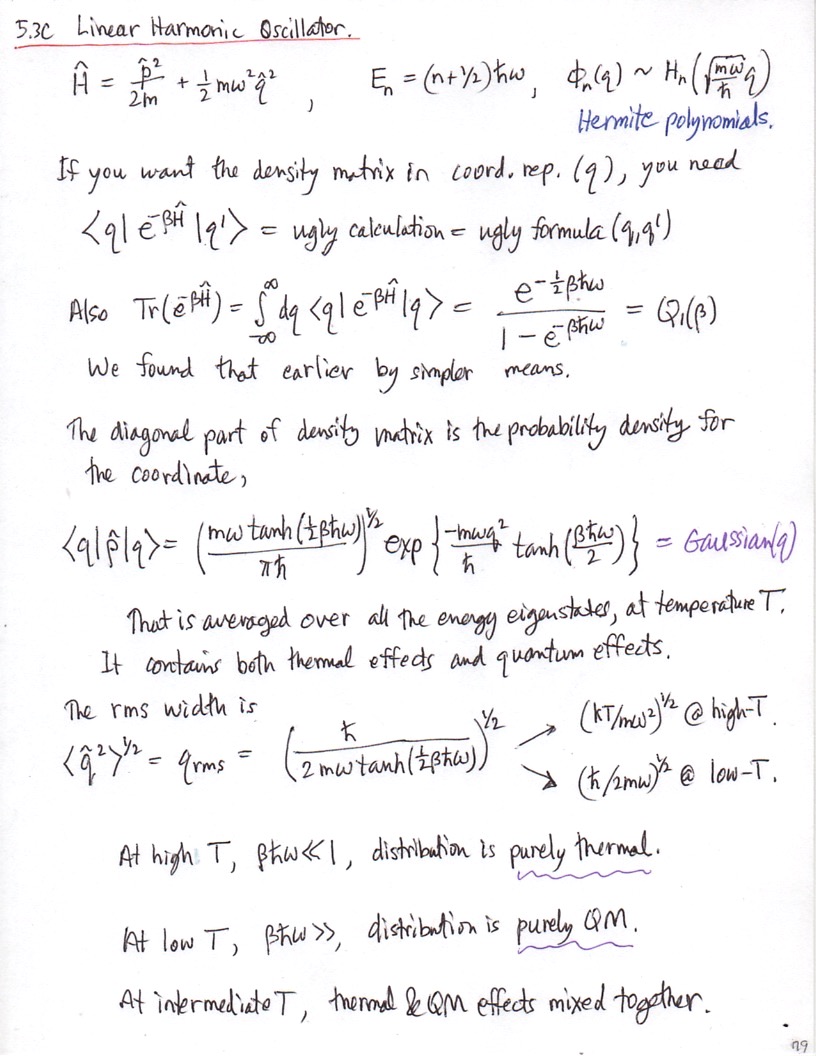 5.3C Linear Harmonic Oscillator.
Ĥ = p̂²/2m + ½mω²q̂² , Eₙ = (n+½)ħω , ϕₙ(q) ~ Hₙ(√(mω/ħ) q)
Hermite polynomials.
If you want the density matrix in coord. rep. (q), you need
⟨q| e^{-βĤ} |q'⟩ = ugly calculation = ugly formula (q,q')
Also Tr(e^{-βĤ}) = ∫_{-∞}^{∞} dq ⟨q| e^{-βĤ} |q⟩ = e^{-½βħω} / (1 - e^{-βħω}) = Q₁(β)
We found that earlier by simpler means.
The diagonal part of density matrix is the probability density for
the coordinate,
⟨q|ρ̂|q⟩ = (mω tanh(½βħω) / πħ)^{1/2} exp{ -mωq²/ħ tanh(βħω/2) } = Gaussian(q)
That is averaged over all the energy eigenstates, at temperature T.
It contains both thermal effects and quantum effects.
The rms width is
⟨q̂²⟩^{1/2} = q_{rms} = (ħ / 2mω tanh(½βħω))^{1/2} ↗ (kT/mω²)^{1/2} @ high-T.
↘ (ħ/2mω)^{1/2} @ low-T.
At high T, βħω≪1, distribution is purely thermal.
At low T, βħω≫, distribution is purely QM.
At intermediate T, thermal & QM effects mixed together.
79